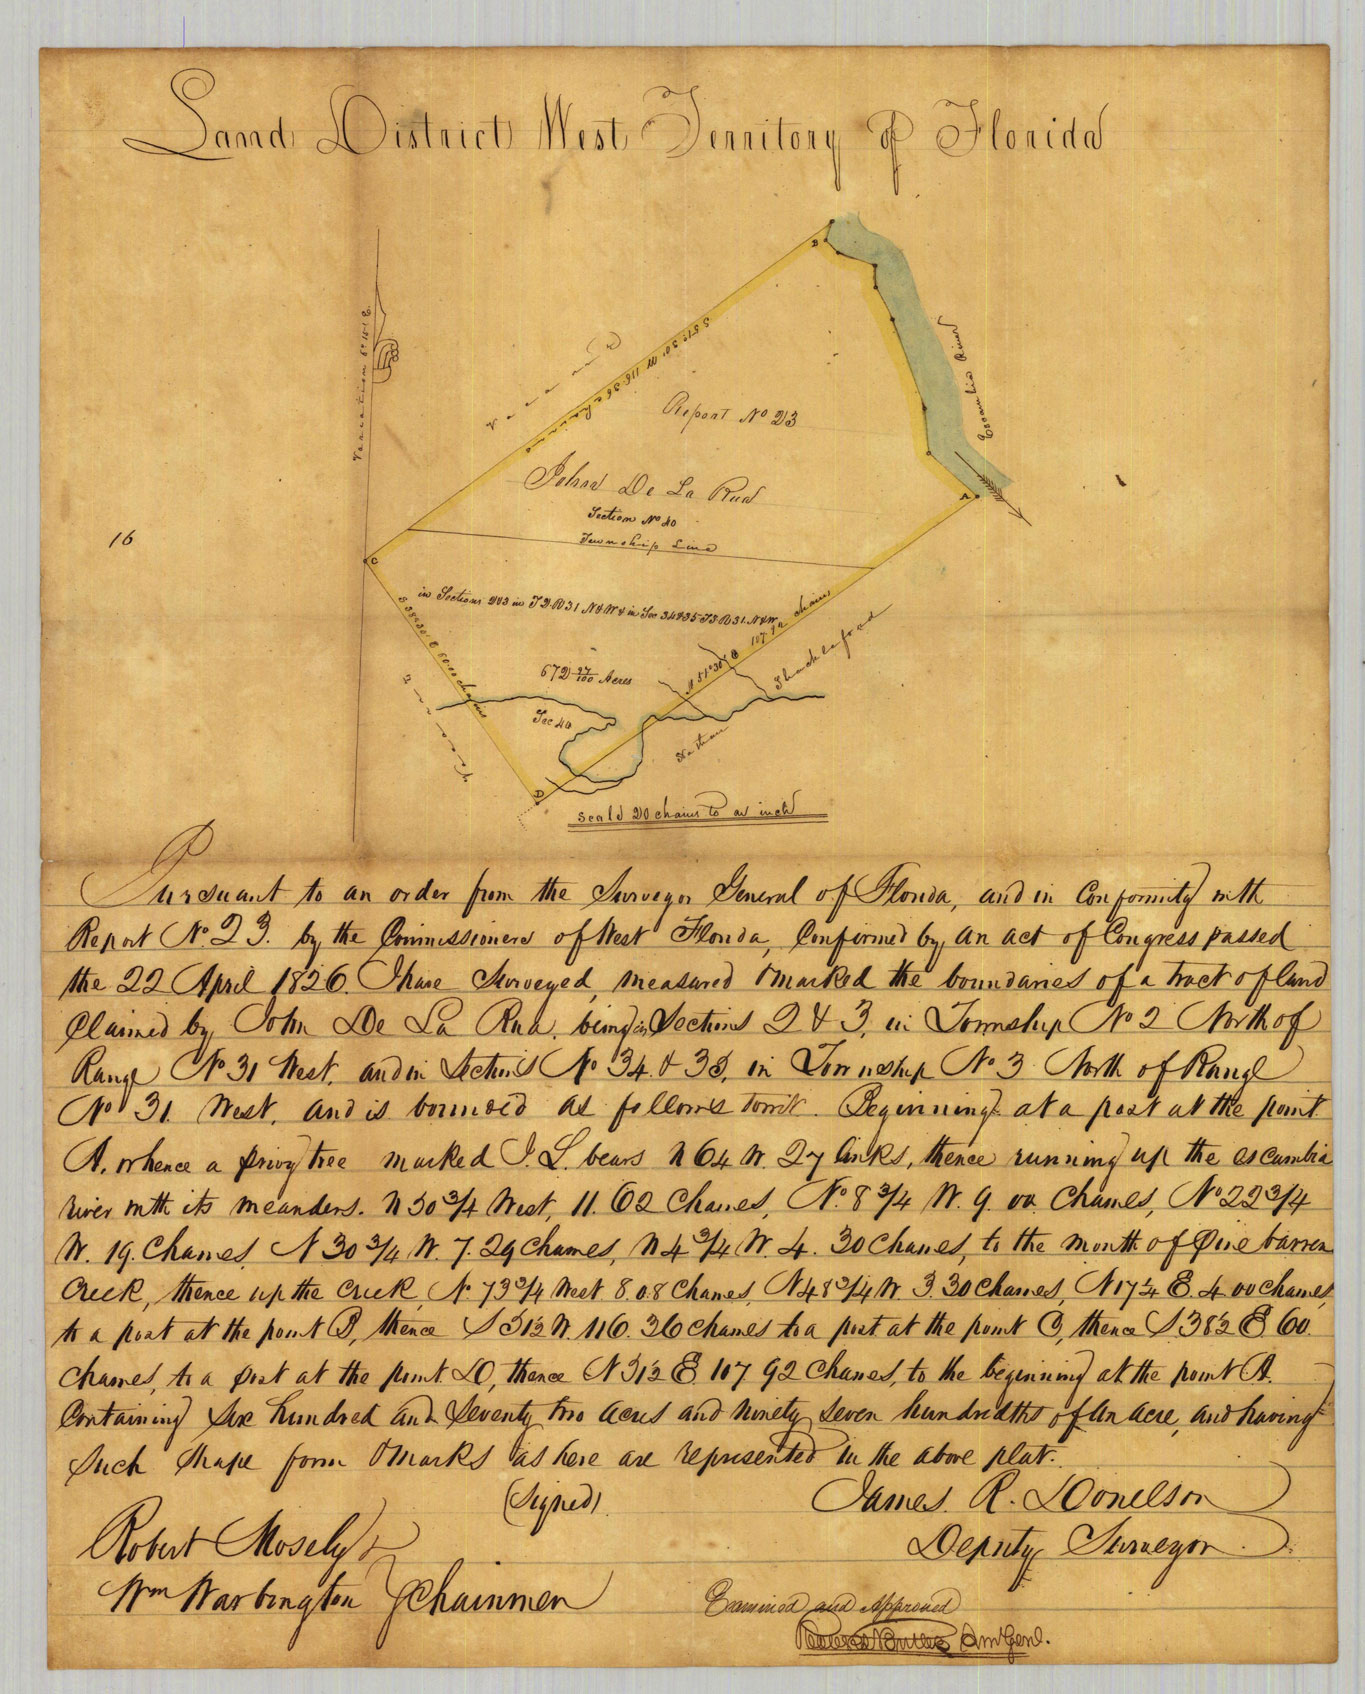 Land District West Territory of Florida
B
Variation 6° 15' E.
Vacant
S 51° 30' W 116.36 chains
Escambia River
Report No 23
John De La Rua
Section No 40
Township Line
A
16
C
in Sections 2&3 in T2 R31 N&W & in Sec 34&35 T3 R31. N&W.
S 38° 30' E 60.00 chains
N 51° 30' E 107.92 chains
Shackleford
672 97/100 Acres
Sec 40
Vacant
Nathan
D
Scale 20 chains to an inch
Pursuant to an order from the Surveyor General of Florida, and in Conformity with
Report No. 23. by the Commissioners of West Florida, Confirmed by an act of Congress passed
the 22 April 1826. I have Surveyed, measured & marked the boundaries of a tract of land
Claimed by John De La Rua, being in Sections 2 & 3, in Township No 2 North of
Range No 31 West, and in Sections No 34 & 35, in Township No 3 North of Range
No 31. West, and is bounded as follows towit. Beginning at a post at the point
A. whence a privy tree marked J. L. bears N 64 W. 27 links, thence running up the escambia
river with its meanders. N 30 3/4 West, 11. 62 Chaines, No. 8 3/4 W. 9. 00. Chaines, No 22 3/4
W. 19. Chaines, N 30 3/4 W. 7. 29 Chaines, N 4 3/4 W. 4. 30 Chaines, to the mouth of Pine barren
Creek, thence up the Creek, N. 73 3/4 West 8.08 Chaines, N 48 3/4 W. 3.30 Chaines, N 17 1/2 E. 4.00 chaines,
to a post at the point B, thence S 51 1/2 W. 116. 36 chaines to a post at the point C, thence S 38 1/2 E 60.
chaines, to a post at the point D, thence N 51 1/2 E. 107 92 Chaines, to the beginning at the point A.
Containing Six hundred and Seventy two acres and ninety seven hundredths of an acre, and having
such shape form & marks as here are represented in the above plat.
(Signed)
James R. Donelson
Deputy Surveyor
Robert Mosely
Wm Warbington } Chainmen
Examined and Approved
Robert Butler